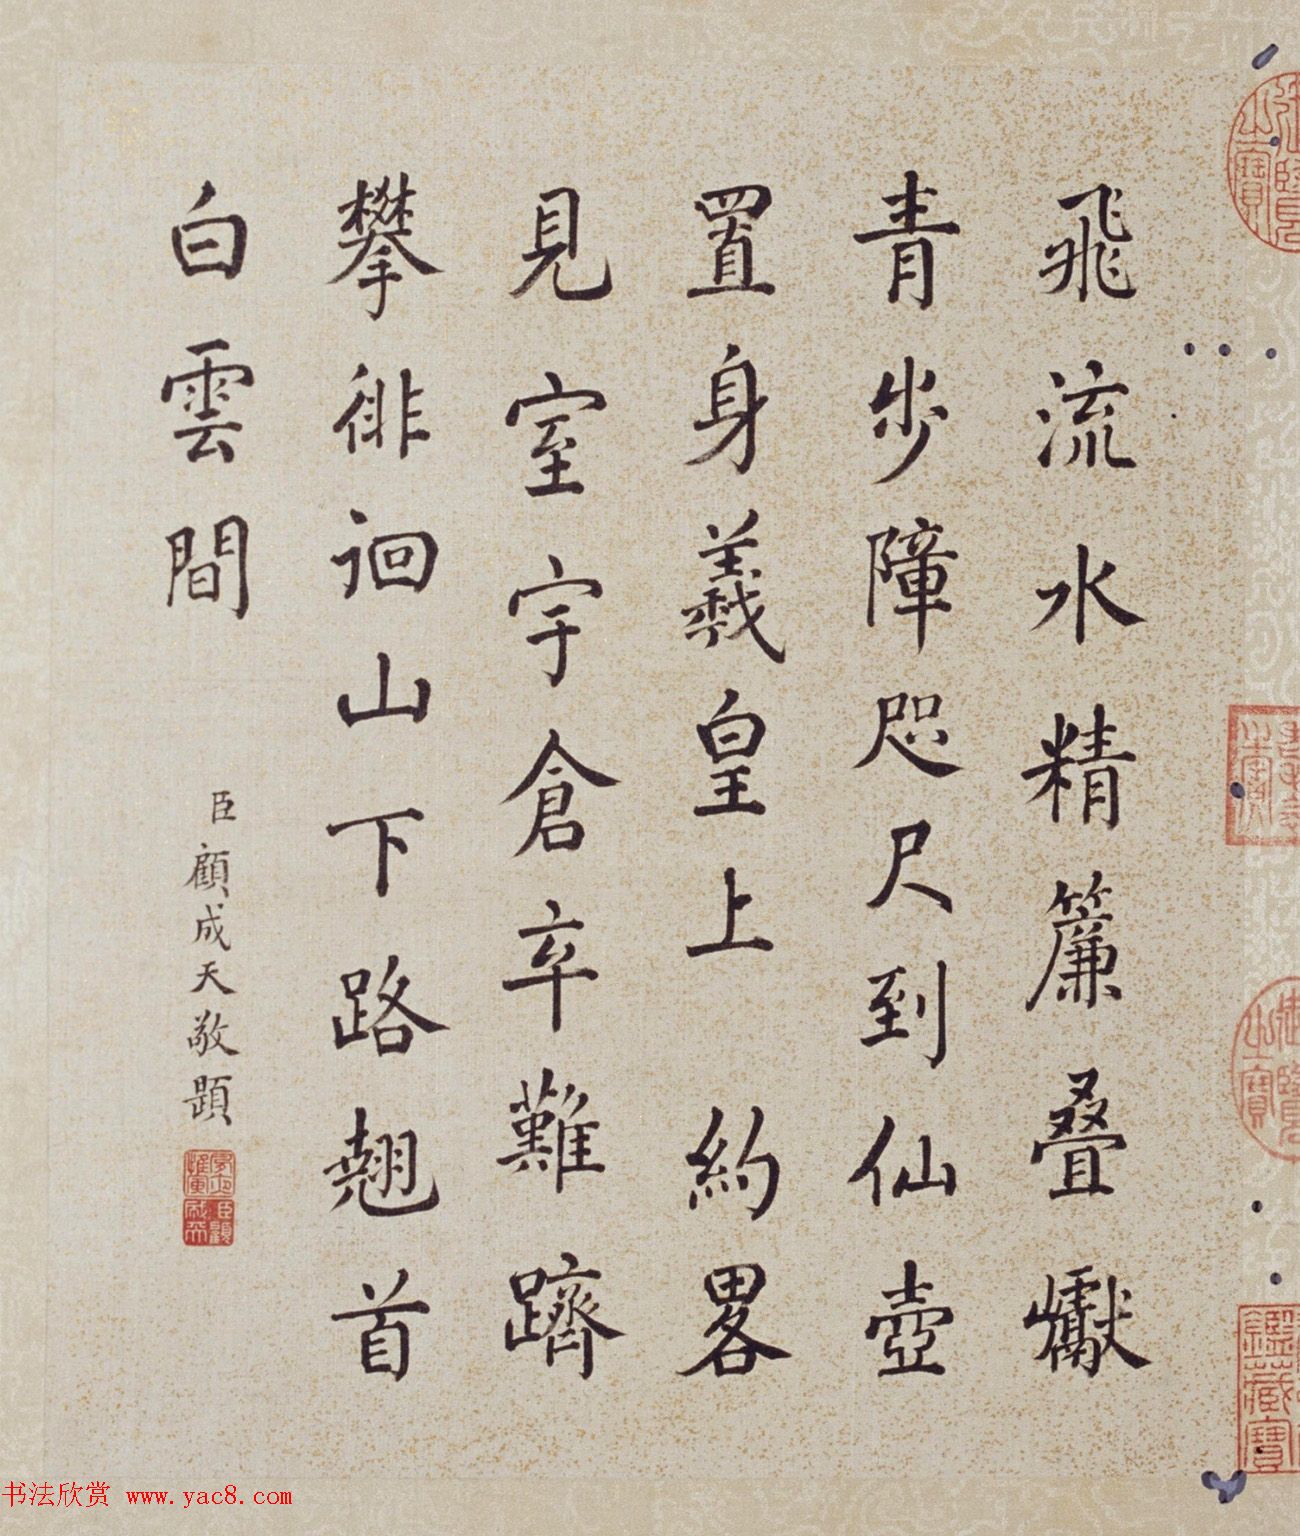 飛流水精簾叠巘
青步障咫尺到仙壺
置身羲皇上約畧
見室宇倉卒難躋
攀徘徊山下路翹首
白雲間
臣顧成天敬題
鑑藏寶
书法欣赏 www.yac8.com